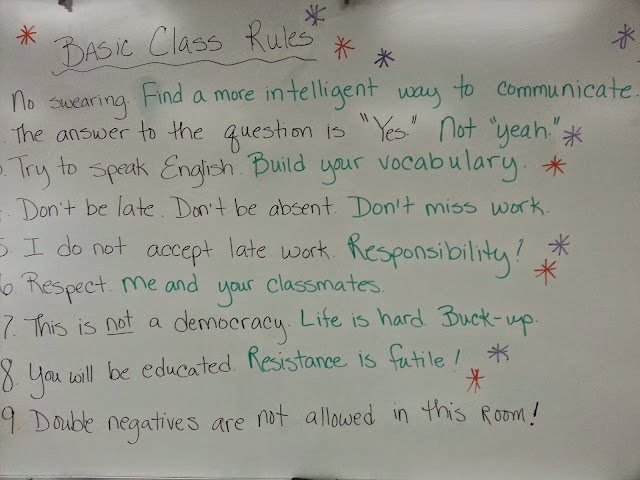 Basic Class Rules
No swearing. Find a more intelligent way to communicate.
. The answer to the question is "Yes." Not "yeah."
. Try to speak English. Build your vocabulary.
. Don't be late. Don't be absent. Don't miss work.
5. I do not accept late work. Responsibility!
6. Respect. Me and your classmates.
7. This is not a democracy. Life is hard. Buck-up.
8. You will be educated. Resistance is futile!
9. Double negatives are not allowed in this room!